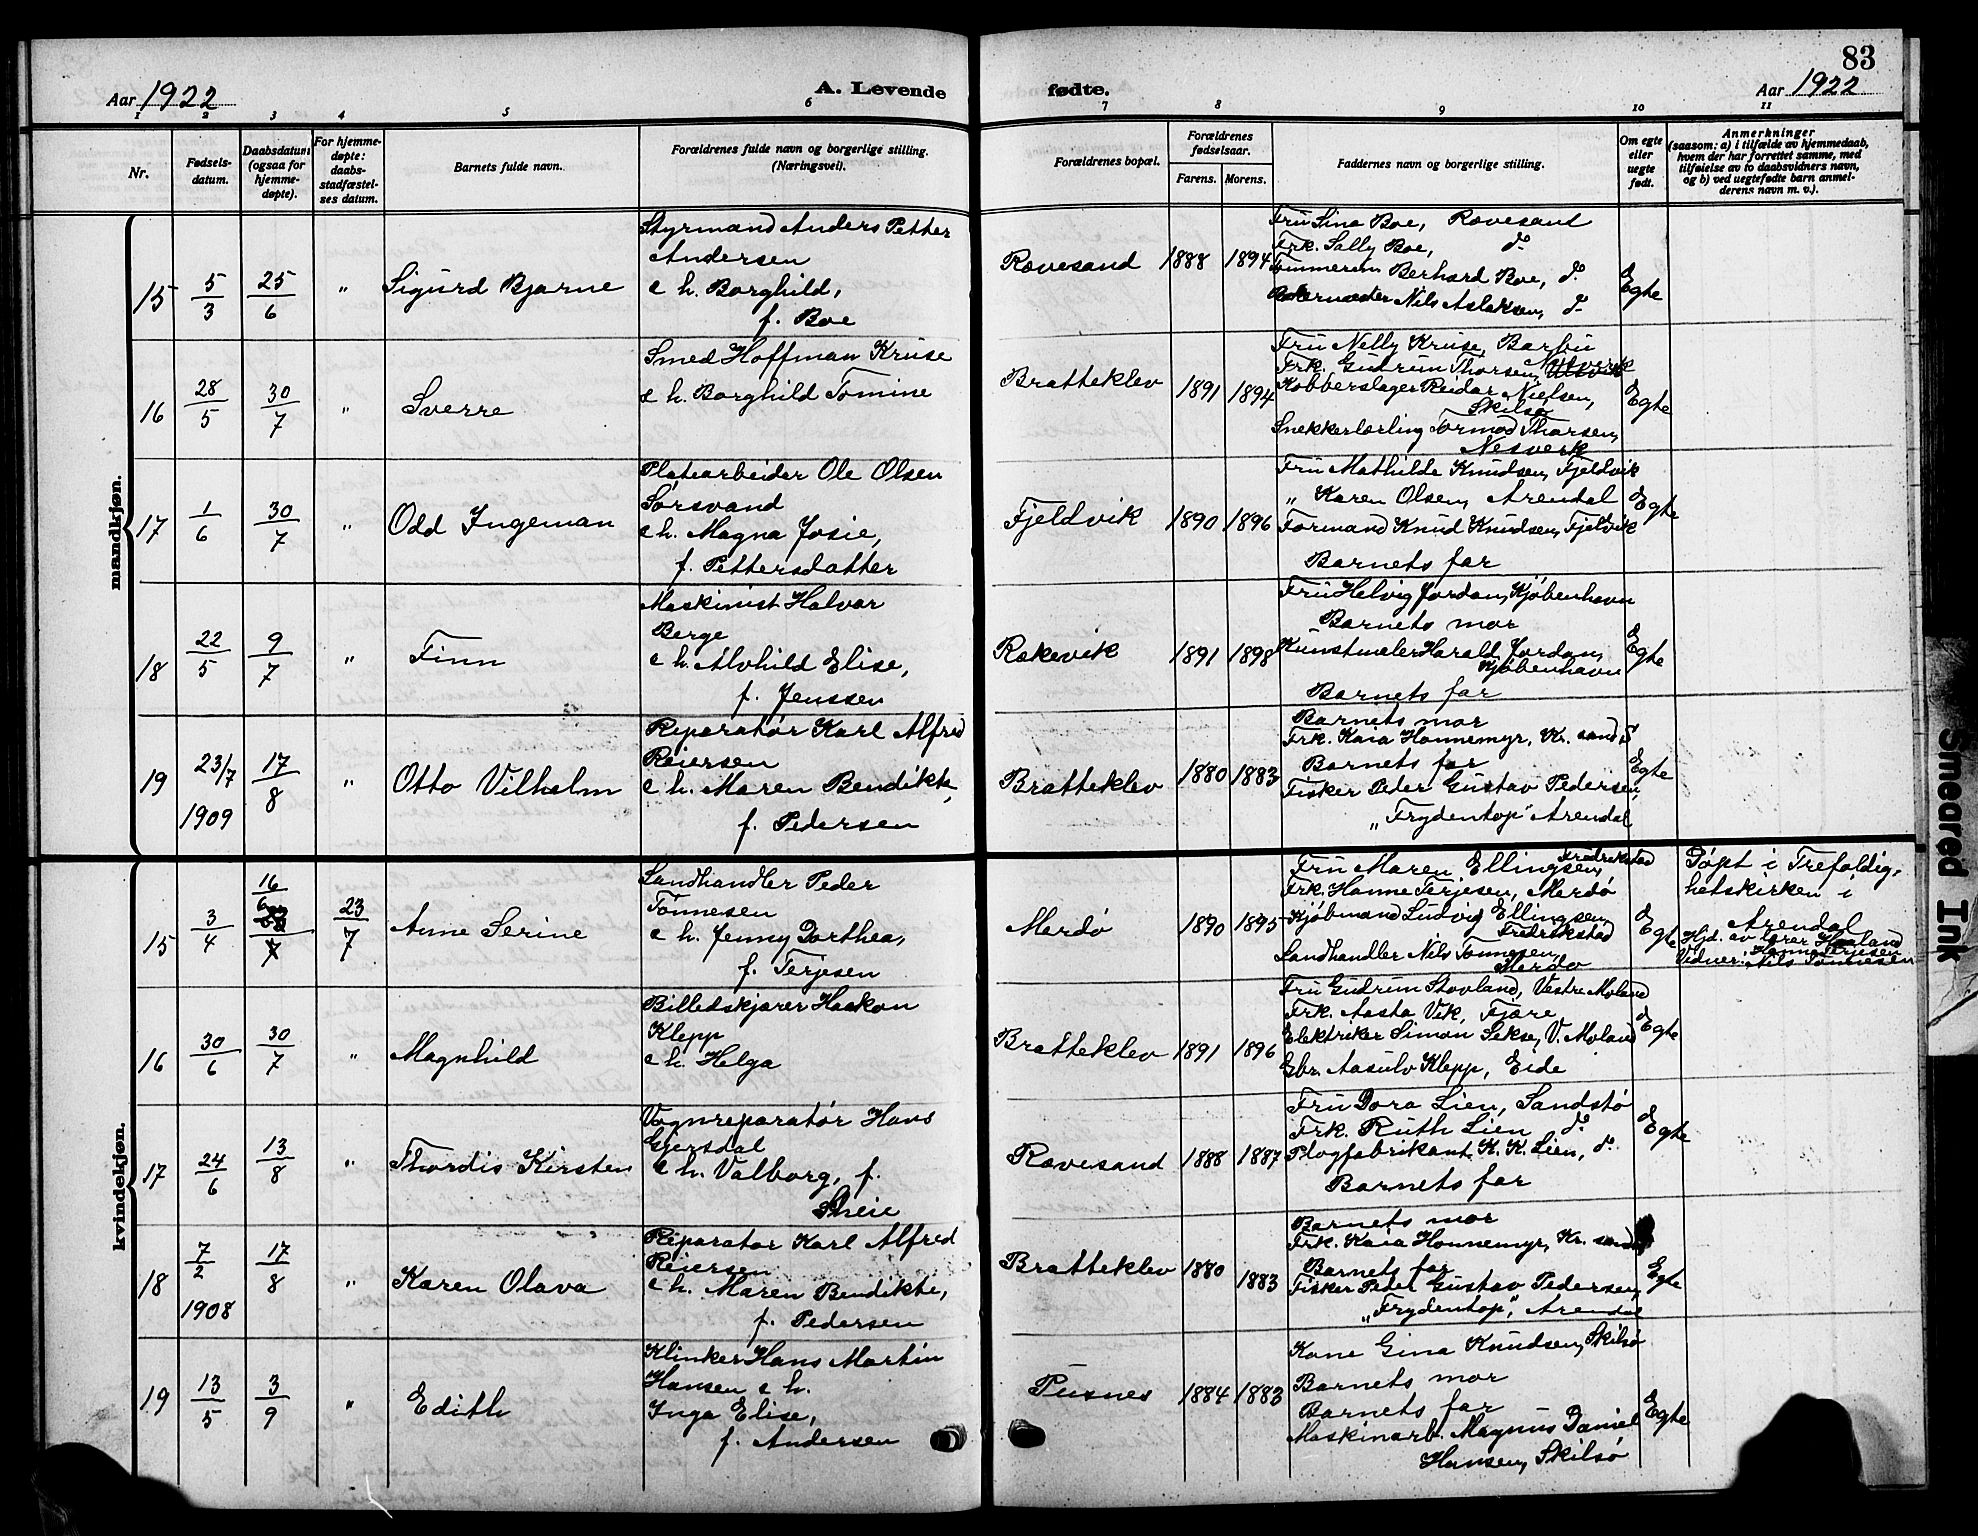 83
Aar 1922
A. Levende
fødte.
Aar 1922
1 2 3 4 5 6 7 8 9 10 11
Nr.
Fødsels-
datum.
Daabsdatum
(ogsaa for
hjemme-
døpte).
For hjemme-
døpte:
daabs-
stadfæstel-
ses datum.
Barnets fulde navn.
Forældrenes fulde navn og borgerlige stilling.
(Næringsvei).
Forældrenes bopæl.
Forældrenes
fødselsaar.
Farens. Morens.
Faddernes navn og borgerlige stilling.
Om egte
eller
uegte
født.
Anmerkninger
(saasom: a) i tilfælde av hjemmedaab,
hvem der har forrettet samme, med
tilføielse av to daabsvidners navn,
og b) ved uegtefødte barn anmel-
derens navn m. v.).
mandkjøn.
15
5/3
25/6
"
Sigurd Bjarne
Styrmand Anders Petter
Andersen
e h. Borghild,
f. Boe
Rævesand
1888
1894
Fru Sina Boe, Rævesand
Frk. Sally Boe, d.
Tømmerm Berhard Boe, d.
Nils Aslaksen, d.
Egte
16
28/5
30/7
"
Sverre
Smed Hoffman Kruse
e h. Borghild Tomine
Bratteklev
1891
1894
Fru Nelly Kruse, Barbu
Frk. Gudrun Thorsen, Nesverk
Kobberslager Reidar Nielsen,
Skilsø
Snekkerlærling Tormod Thorsen,
Nesverk
Egte
17
1/6
30/7
"
Odd Ingeman
Platearbeider Ole Olsen
Sørsvand
e h. Magna Josie,
f. Pettersdatter
Fjeldvik
1890
1896
Fru Mathilde Knudsen, Fjeldvik
" Karen Olsen, Arendal
Formand Knud Knudsen, Fjeldvik
Barnets far
Egte
18
22/5
9/7
"
Finn
Maskinist Halvar
Berge
e h. Alvhild Elise,
f. Jenssen
Rækevik
1891
1898
Fru Helvig Jordan, Kjøbenhavn
Barnets mor
Kunstmaler Harald Jordan,
Kjøbenhavn
Barnets far
Egte
19
23/7
1909
17/8
"
Otto Vilhelm
Reparatør Karl Alfred
Reiersen
e h. Maren Bendikte,
f. Pedersen
Bratteklev
1880
1883
Barnets mor
Frk. Kaia Honnemyr, Kr. sand S
Barnets far
Fisker Peder Gustav Pedersen,
"Frydentop" Arendal
Egte
kvindekjøn.
15
3/4
16/6
23/7
Anne Serine
Landhandler Peder
Tønnesen
e h. Jenny Dorthea,
f. Terjesen
Merdø
1890
1895
Fru Maren Ellingsen, Fredrikstad
Frk. Hanne Terjesen, Merdø
Kjøbmand Ludvig Ellingsen,
Fredrikstad
Landhandler Nils Tønnesen,
Merdø
Egte
Døpt i Trefoldig-
hetskirken i
Arendal
Hjd. av lærer Haaland
Vidner: Hanne Terjesen
Nils Tønnesen
16
30/6
30/7
"
Magnhild
Billedskjærer Haakon
Klepp
e h. Helga
Bratteklev
1891
1896
Fru Gudrun Stovland, Vestre Moland
Frk. Aasta Vik, Fjære
Elektriker Simon Sekse, V. Moland
Gbr. Aasulv Klepp, Eide
Egte
17
24/6
13/8
"
Thordis Kirsten
Vognreparatør Hans
Gjersdal
e h. Valborg, f.
Skeie
Rævesand
1888
1887
Fru Dora Lien, Sandstø
Frk. Ruth Lien d.
Plogfabrikant K. K. Lien, d.
Barnets far
Egte
18
7/2
1908
17/8
"
Karen Olava
Reparatør Karl Alfred
Reiersen
e h. Maren Bendikte,
f. Pedersen
Bratteklev
1880
1883
Barnets mor
Frk. Kaia Honnemyr, Kr. sand
Barnets far
Fisker Peder Gustav Pedersen,
"Frydentop", Arendal
Egte
19
13/5
3/9
"
Edith
Klinker Hans Martin
Hansen e h.
Inga Elise,
f. Andersen
Pusnes
1884
1883
Kone Gina Knudsen, Skilsø
Barnets mor
Barnets far
Maskinarb. Magnus Daniel
Hansen, Skilsø
Egte
Smeared Ink